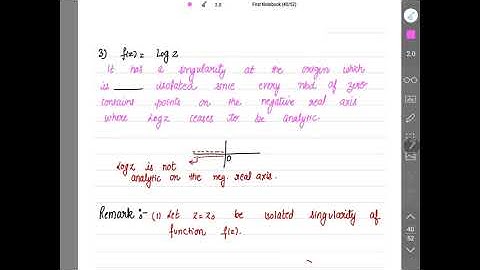 First Notebook (40/52)
2.0
3) f(z) = Log z
It has a singularity at the origin which
is ____ isolated since every nbd of zero
contains points on the negative real axis
where Logz ceases to be analytic.
0
Logz is not
analytic on the neg. real axis.
Remark :- (1) Let z=z₀ be isolated singularity of
function f(z).
2.0
40
52